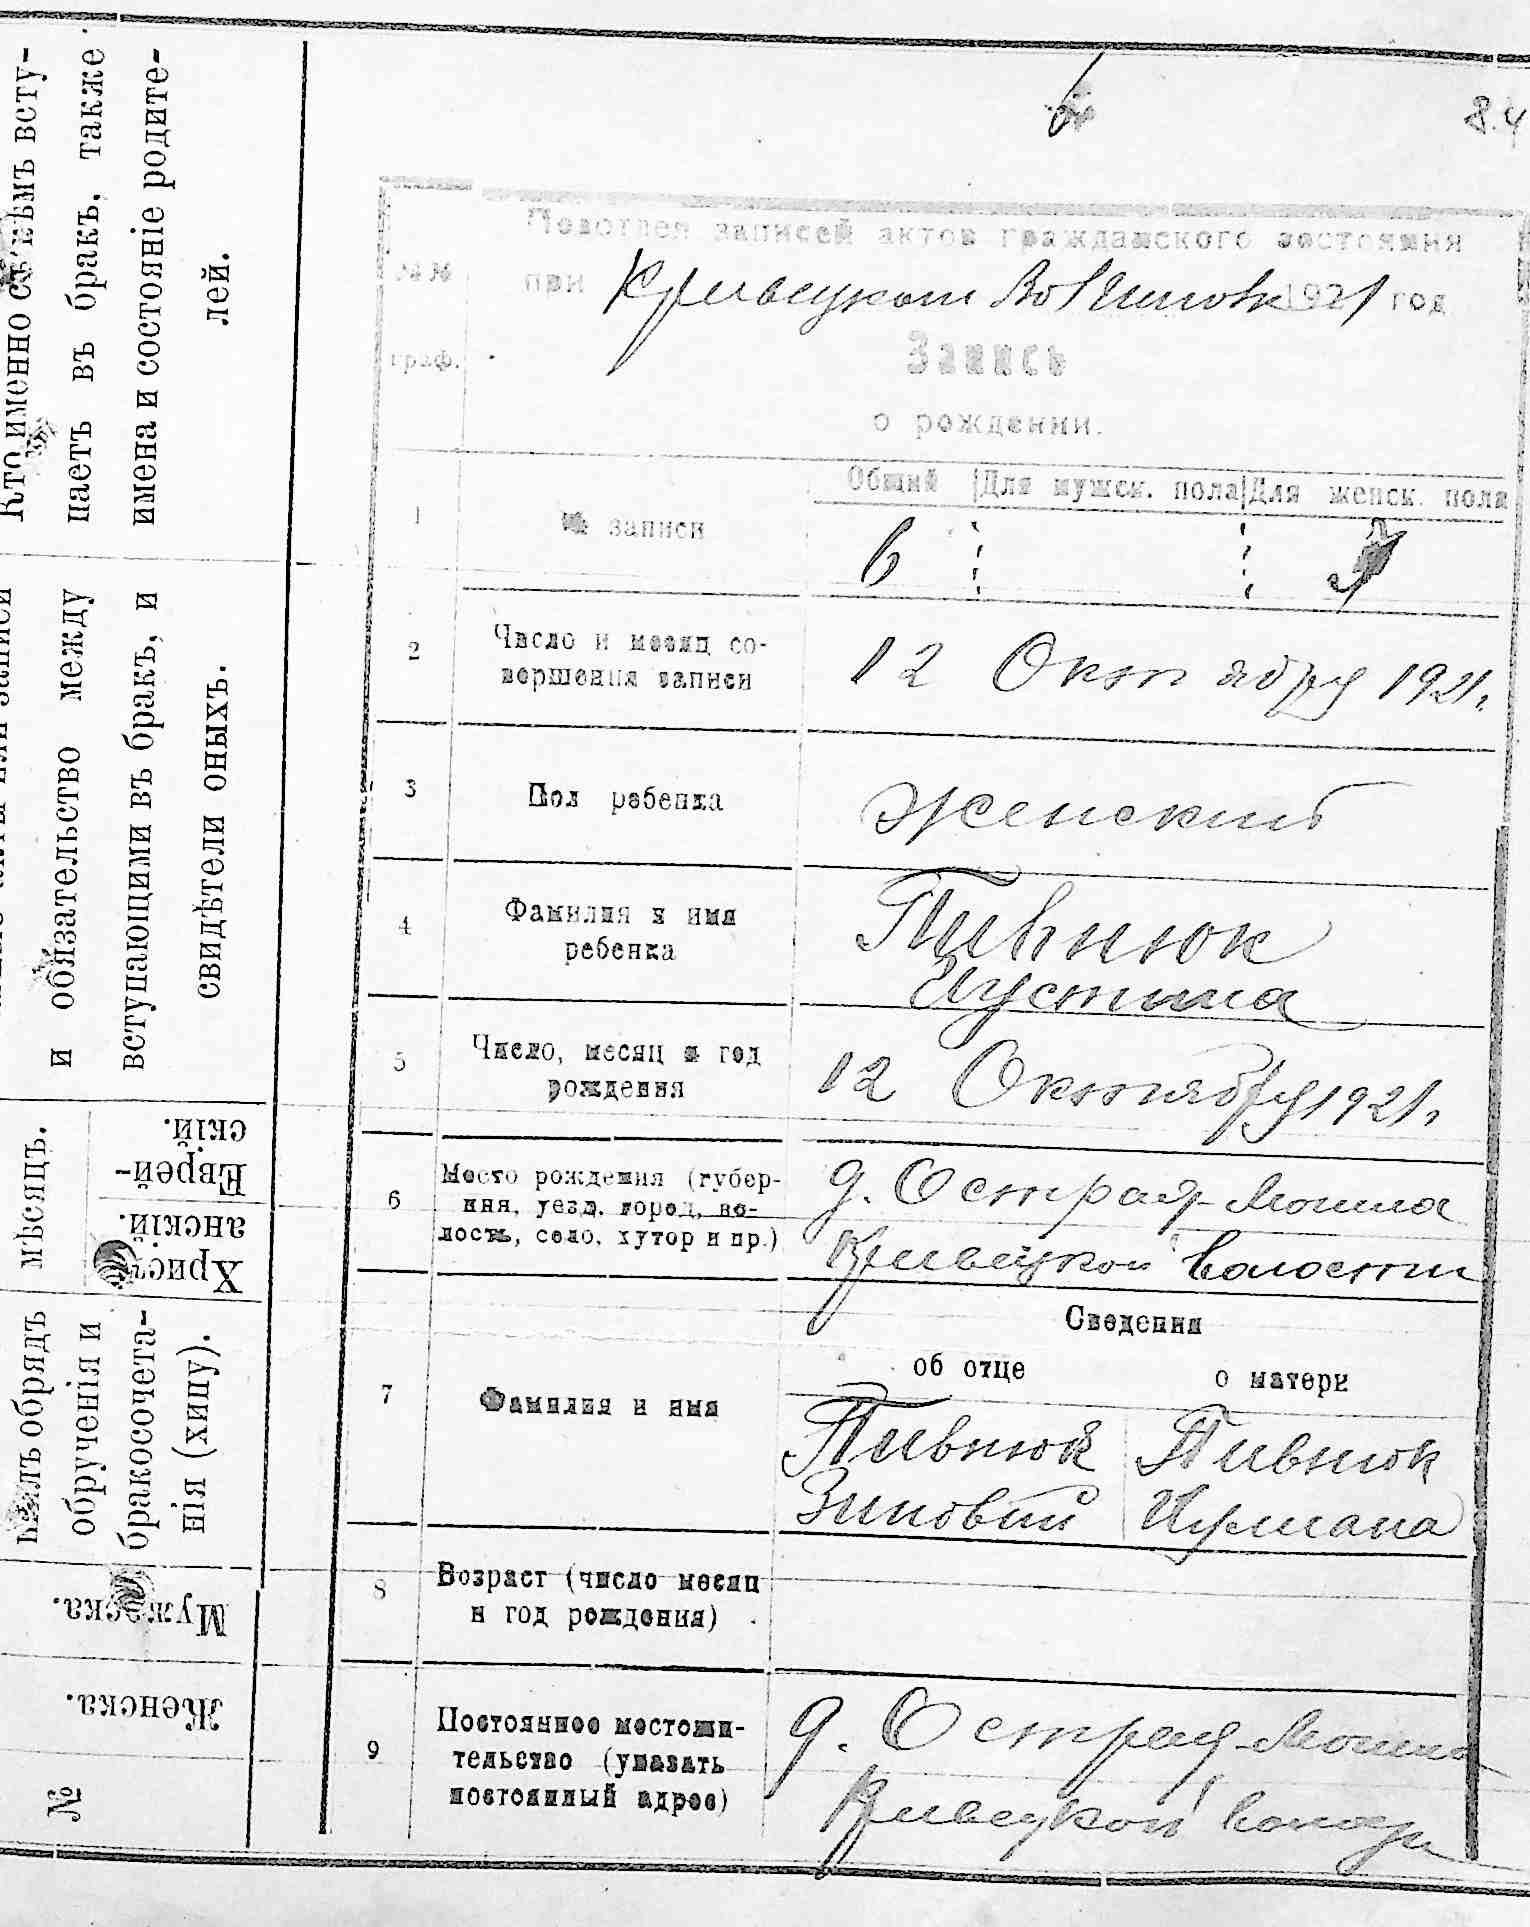 Кто именно съ кѣмъ всту-
паетъ въ бракъ, также
имена и состояніе родите-
лей.
и обязательство между
вступающими въ бракъ, и
свидѣтели оныхъ.
мѣсяцъ.
Еврей-
скій.
Христі-
анскій.
обрядъ
обрученія и
бракосочета-
нія (хипу).
Мужеска.
Женска.
№
6
8.4
Подотдел записей актов гражданского состояния
№№
граф.
при Кривецком 1921 год
Запись
о рождении.
Общий Для мужск. пола Для женск. пола
1 № записи 6
2 Число и месяц со-
вершения записи
12 Октябру 1921 г.
3 Пол ребенка Женский
4 Фамилия и имя
ребенка
Пивнюк
Иустина
5 Число, месяц и год
рождения
12 Октябру 1921 г.
6 Место рождения (губер-
ния, уезд, город, во-
лость, село, хутор и пр.)
д. Острая-Могила
Кривецкой Волости
Сведения
об отце о матери
7 Фамилия и имя
Пивнюк Пивнюк
Зиновий
8 Возраст (число месяц
и год рождения)
9 Постоянное местожи-
тельство (указать
постоянный адрес)
д. Острая-Могила
Кривецкой